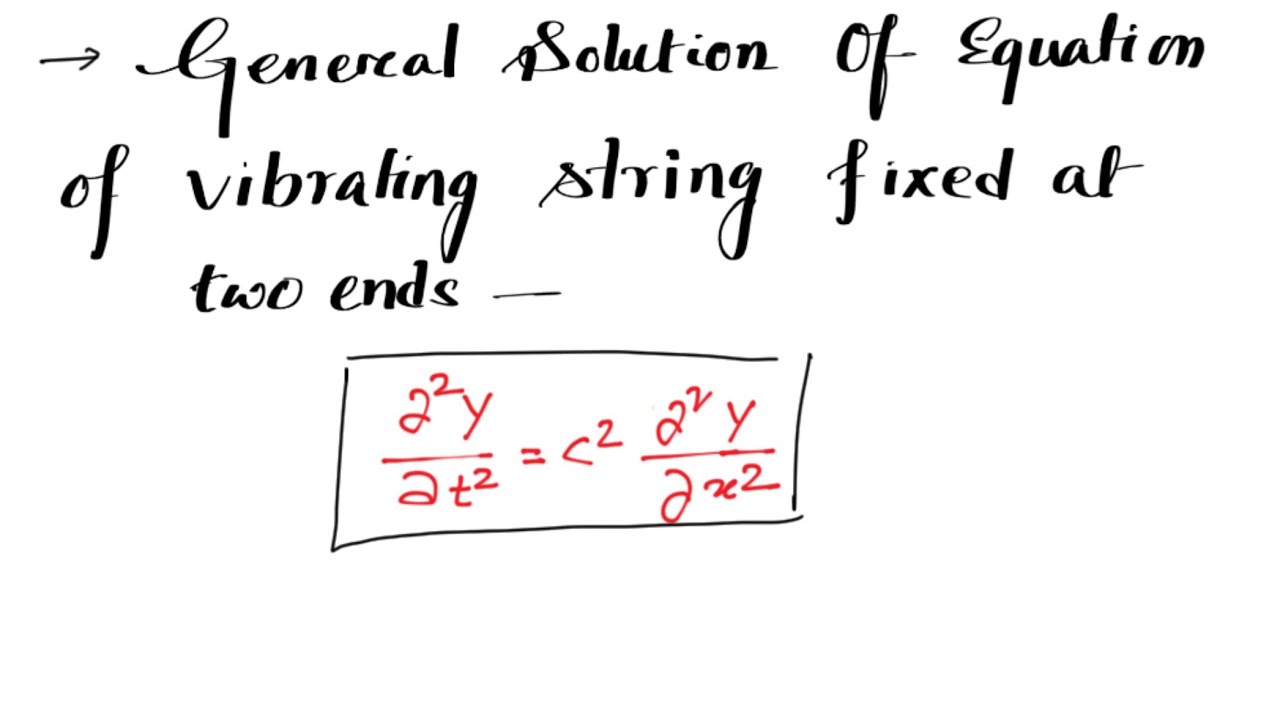 → General Solution Of Equation
of vibrating string fixed at
two ends —
∂²y/∂t² = c² ∂²y/∂x²